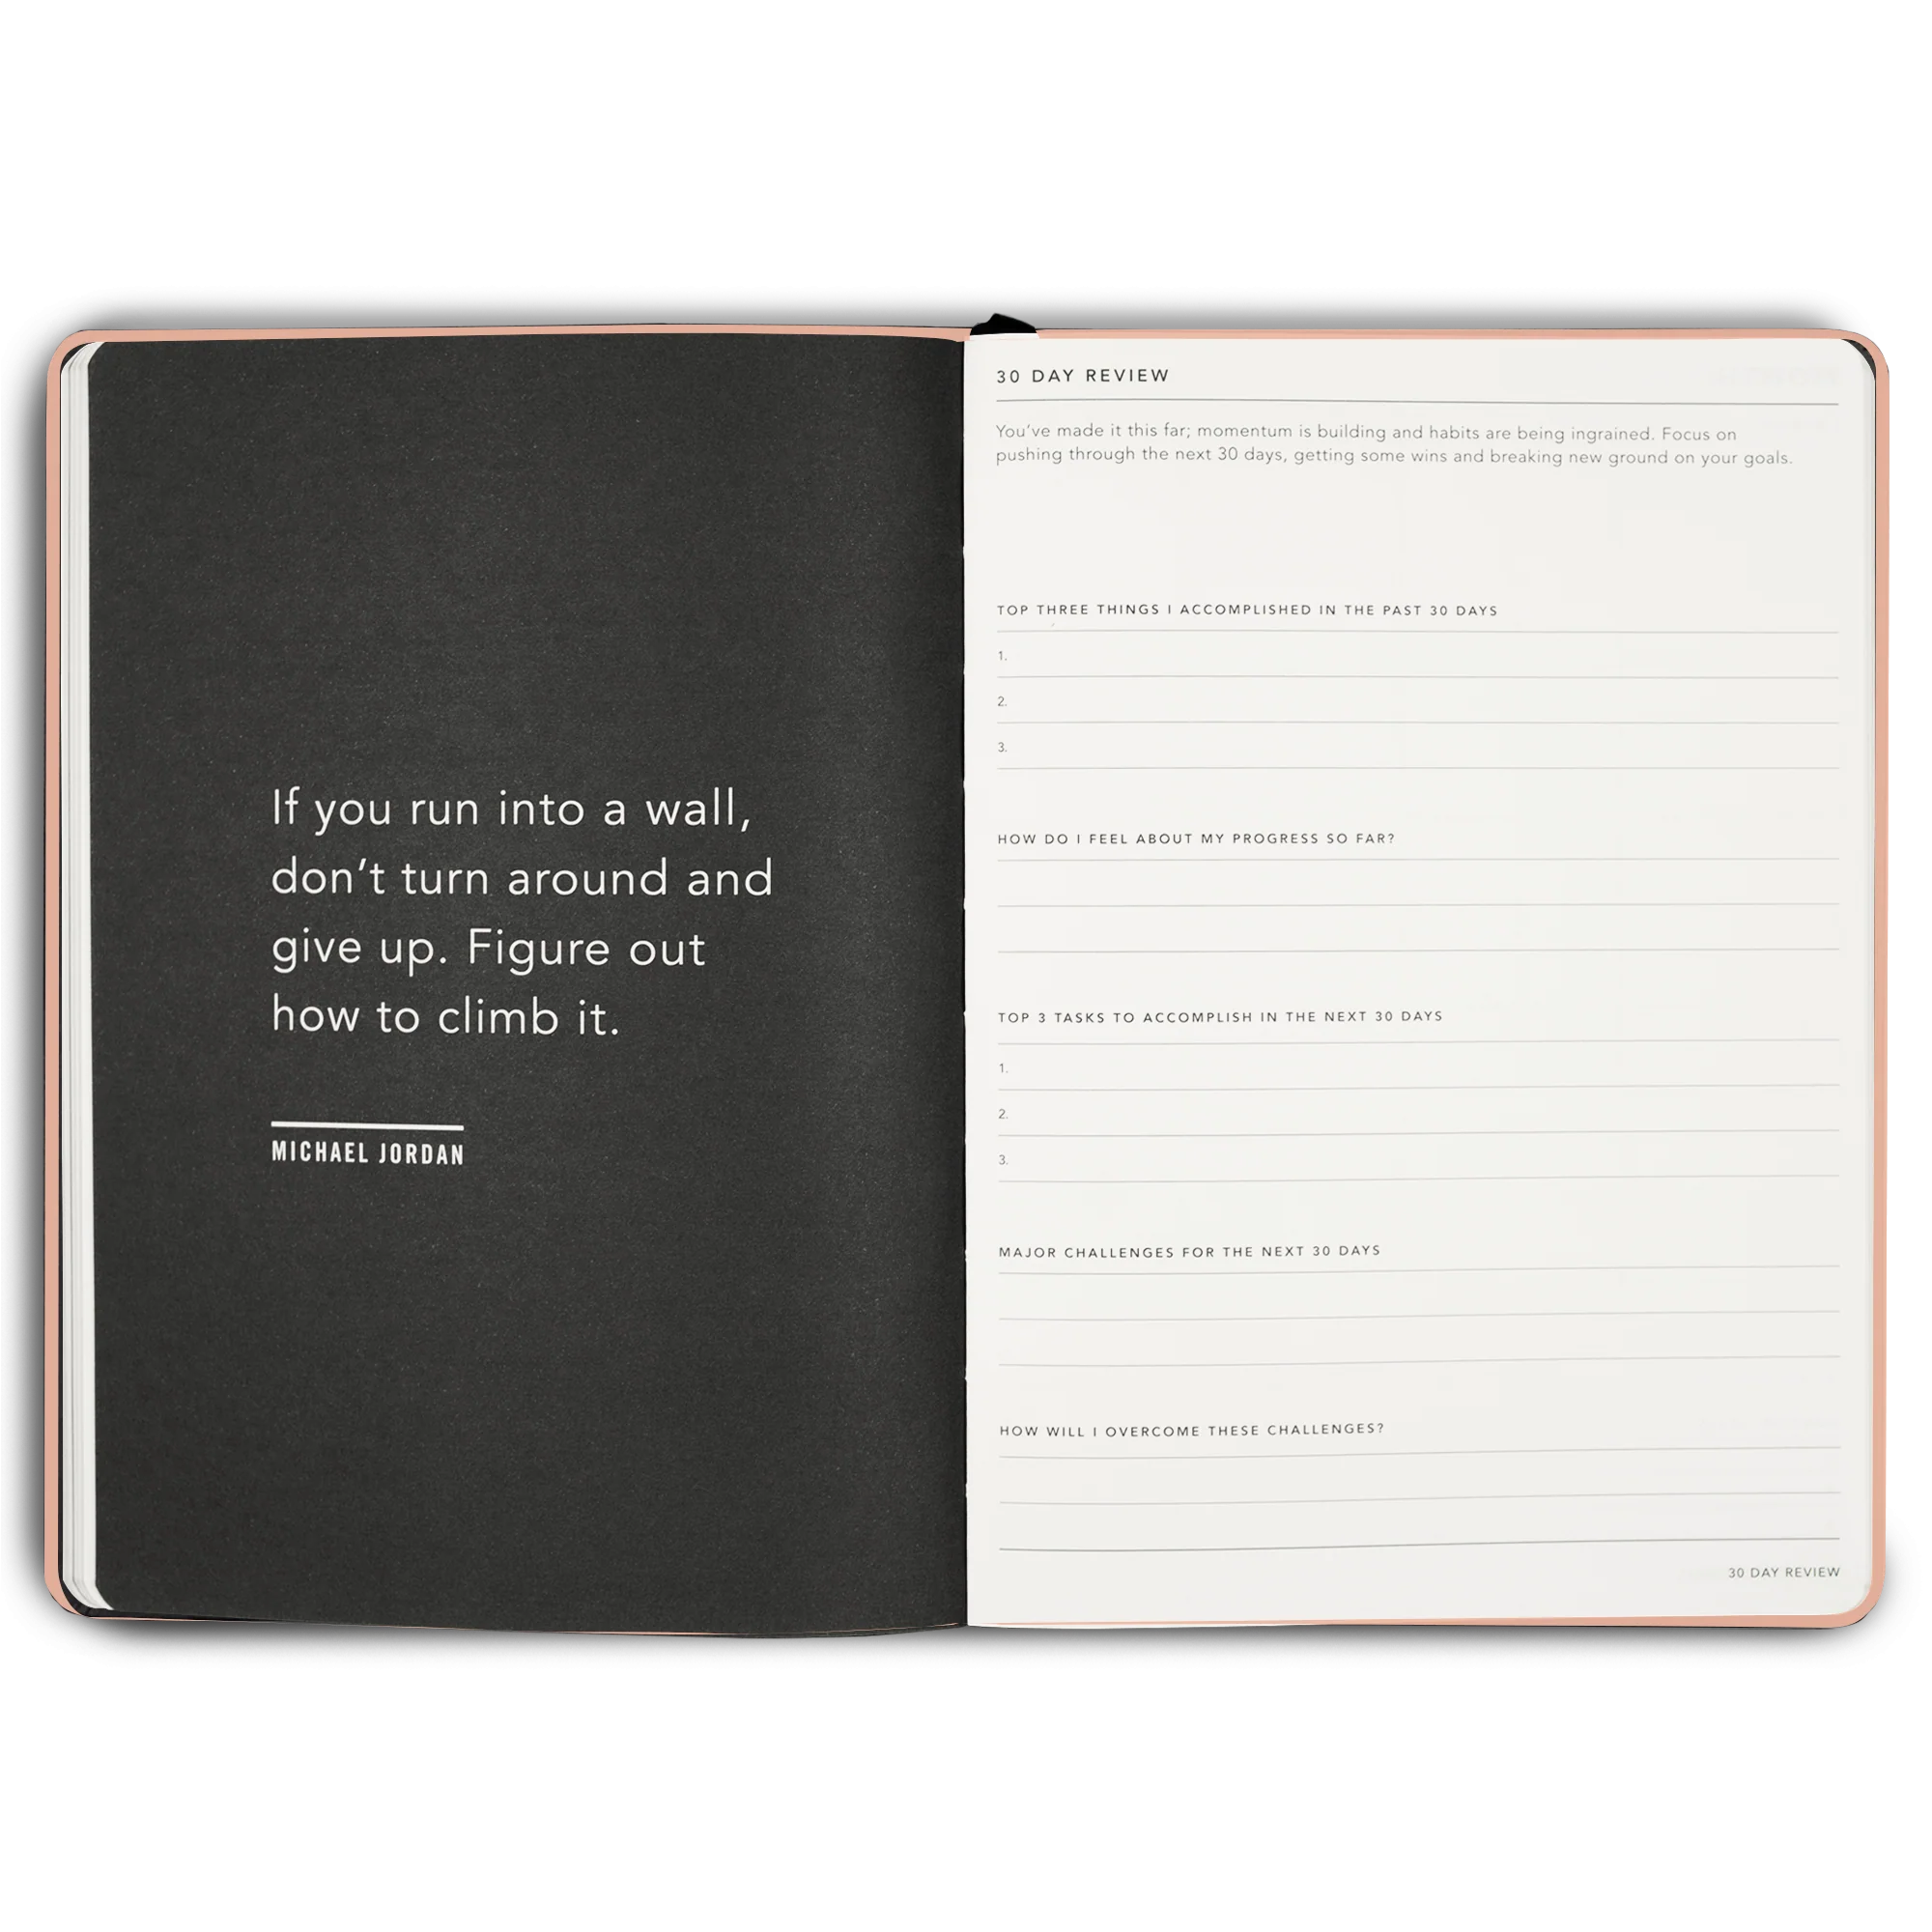 If you run into a wall,
don't turn around and
give up. Figure out
how to climb it.
MICHAEL JORDAN
30 DAY REVIEW
You've made it this far; momentum is building and habits are being ingrained. Focus on
pushing through the next 30 days, getting some wins and breaking new ground on your goals.
TOP THREE THINGS I ACCOMPLISHED IN THE PAST 30 DAYS
1.
2.
3.
HOW DO I FEEL ABOUT MY PROGRESS SO FAR?
TOP 3 TASKS TO ACCOMPLISH IN THE NEXT 30 DAYS
1.
2.
3.
MAJOR CHALLENGES FOR THE NEXT 30 DAYS
HOW WILL I OVERCOME THESE CHALLENGES?
30 DAY REVIEW